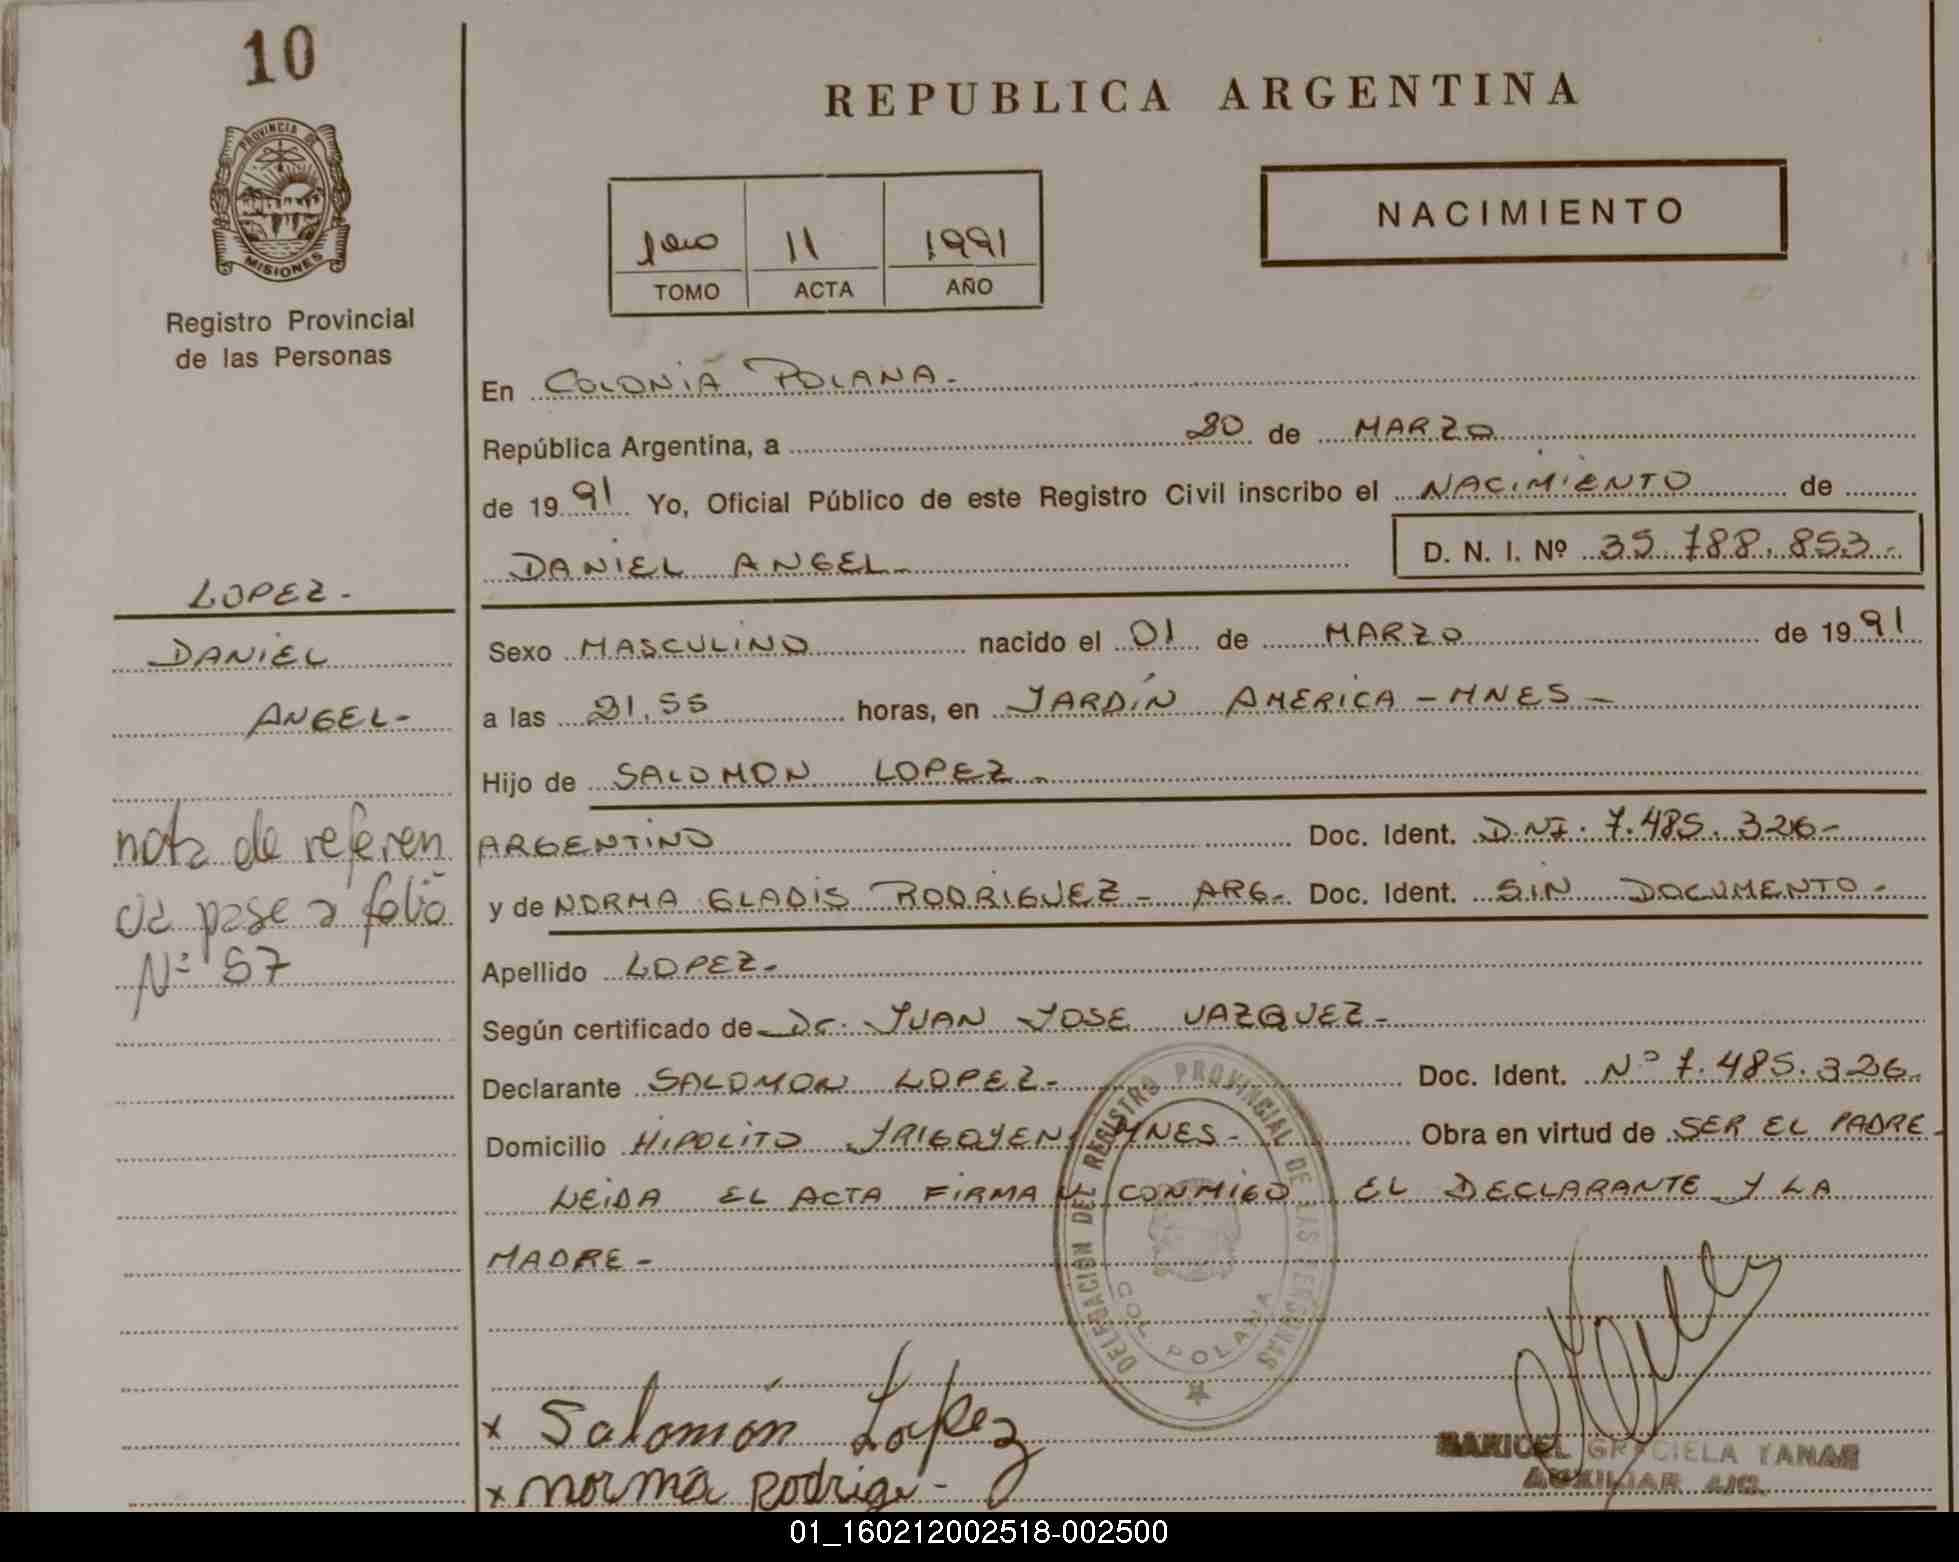 10
PROVINCIA DE
MISIONES
Registro Provincial
de las Personas
REPUBLICA ARGENTINA
NACIMIENTO
1ero 11 1991
TOMO ACTA AÑO
En COLONIA POLANA.-
República Argentina, a 20 de MARZO
de 1991 Yo, Oficial Público de este Registro Civil inscribo el NACIMIENTO de
DANIEL ANGEL.-
D. N. I. Nº 35.788.853.-
LOPEZ.-
DANIEL
ANGEL-
nota de referen
cia pase a folio
Nº 57
Sexo MASCULINO nacido el 01 de MARZO de 1991
a las 21,55 horas, en JARDIN AMERICA - MNES -
Hijo de SALOMON LOPEZ -
ARGENTINO Doc. Ident. D.NI. 7.485.326-
y de NORMA GLADIS RODRIGUEZ - ARG- Doc. Ident. SIN DOCUMENTO-
Apellido LOPEZ-
Según certificado de Dr. JUAN JOSE VAZQUEZ-
Declarante SALOMON LOPEZ- Doc. Ident. Nº 7.485.326.
Domicilio HIPOLITO YRIGOYEN, MNES- Obra en virtud de SER EL PADRE-
LEIDA EL ACTA FIRMA CONMIGO EL DECLARANTE Y LA
MADRE-
DELEGACION DEL REGISTRO PROVINCIAL DE LAS PERSONAS
COL. POLANA
x Salomón Lopez
x norma Rodrigu-
GRACIELA YANAR
AUXILIAR
01_160212002518-002500